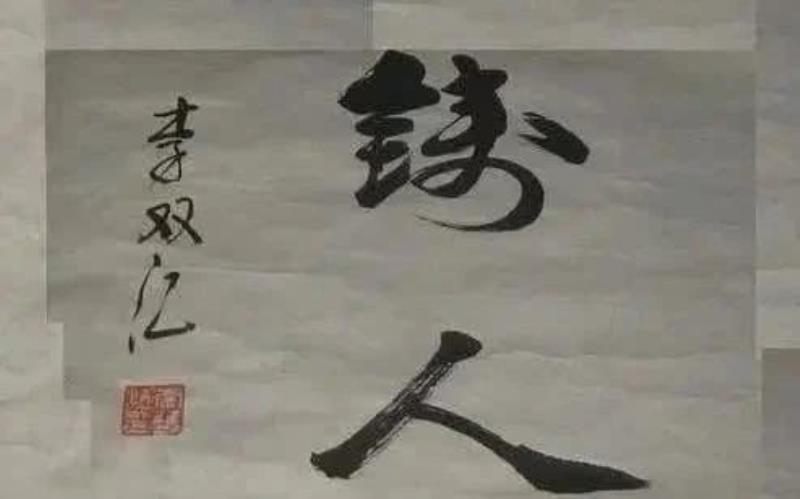 鑄人
李双江